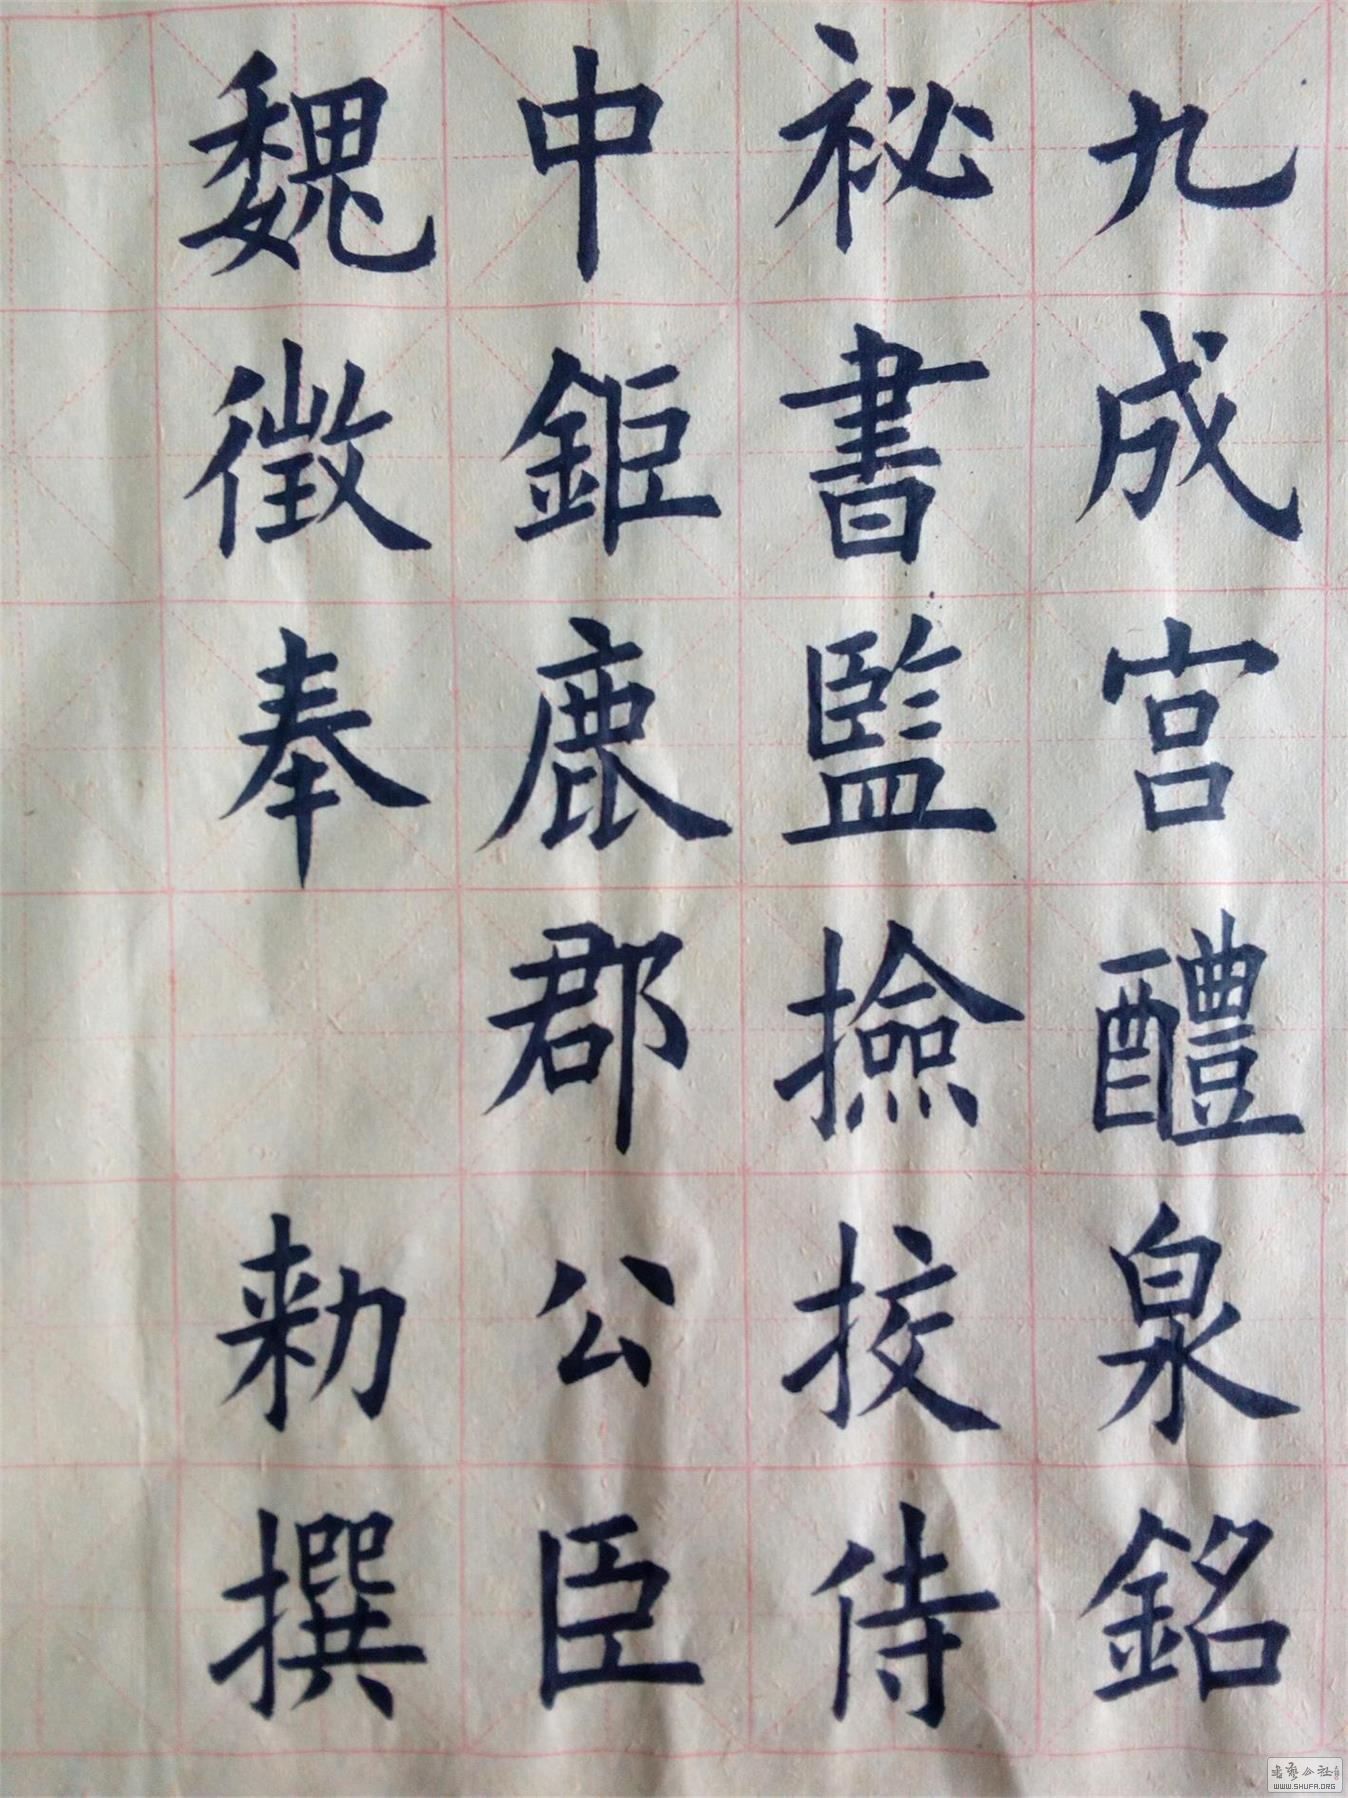 九成宮醴泉銘
祕書監撿挍侍
中鉅鹿郡公臣
魏徵奉 勑撰
書藝公社
WWW.SHUFA.ORG